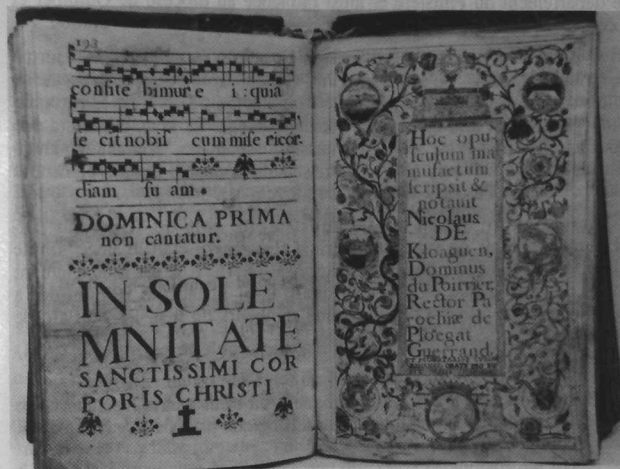 193
confite bimur e i : quia
fe cit nobis cum mife ricor-
diam fu am .
DOMINICA PRIMA
non cantatur.
IN SOLE
MNITATE
SANCTISSIMI COR
PORIS CHRISTI
Hoc opu
sculum ma
nufactum
scripsit &
notauit
Nicolaus
DE
Kloaguen,
Dominus
du Poirrier,
Rector Pa
rochiæ de
Ploegat
Guerrand,
ORATE PRO EO